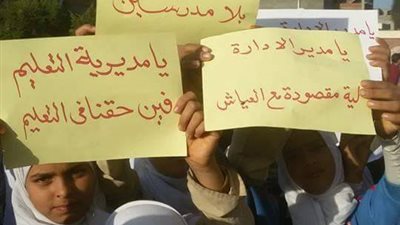 بلا مدرسين
يا مديرية التعليم
فين حقنا فى التعليم
يا مدير الادارة
لية مقصودة مع العياش
يا مدير الادارة